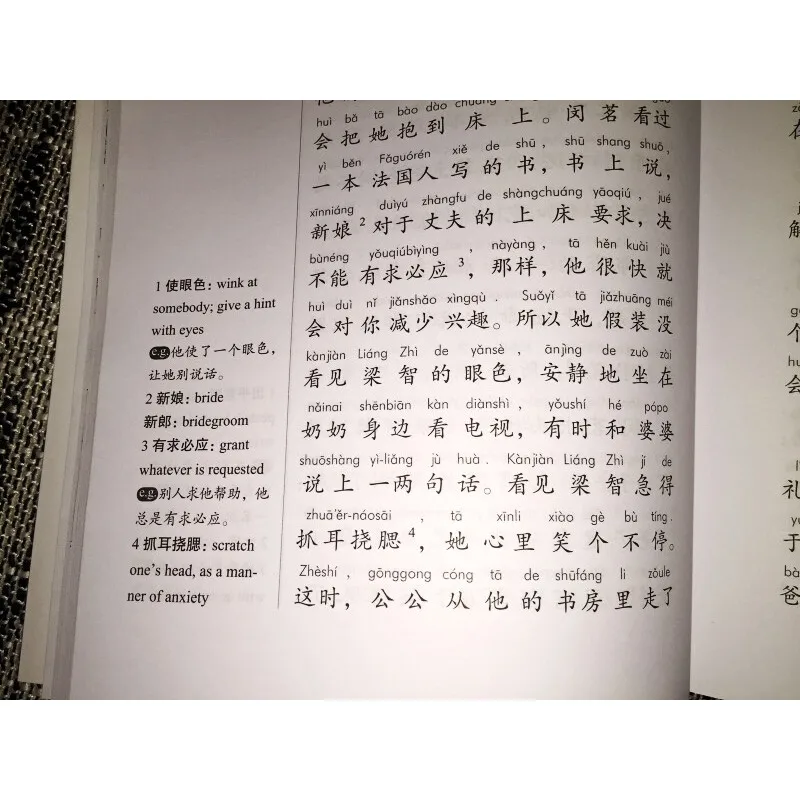 huì bǎ tā bào dào chuáng shàng
会把她抱到床上。闵茗看过
yì běn Fǎguórén xiě de shū, shū shang shuō,
一本法国人写的书,书上说,
xīnniáng duìyú zhàngfu de shàngchuáng yāoqiú, jué
新娘2对于丈夫的上床要求,决
bùnéng yǒuqiúbìyìng, nàyàng, tā hěn kuài jiù
不能有求必应3,那样,他很快就
huì duì nǐ jiǎnshǎo xìngqù. Suǒyǐ tā jiǎzhuāng méi
会对你减少兴趣。所以她假装没
kànjiàn Liáng Zhì de yǎnsè, ānjìng de zuò zài
看见梁智的眼色,安静地坐在
nǎinai shēnbiān kàn diànshì, yǒushí hé pópo
奶奶身边看电视,有时和婆婆
shuōshàng yì-liǎng jù huà. Kànjiàn Liáng Zhì jí de
说上一两句话。看见梁智急得
zhuā'ěr-náosāi, tā xīnli xiào gè bù tíng.
抓耳挠腮4,她心里笑个不停。
Zhèshí, gōnggong cóng tā de shūfáng li zǒule
这时,公公从他的书房里走了
1 使眼色: wink at
somebody; give a hint
with eyes
e.g. 他使了一个眼色,
让她别说话。
2 新娘: bride
新郎: bridegroom
3 有求必应: grant
whatever is requested
e.g. 别人求他帮助,他
总是有求必应。
4 抓耳挠腮: scratch
one's head, as a man-
ner of anxiety
解
个
会
礼
于
爸